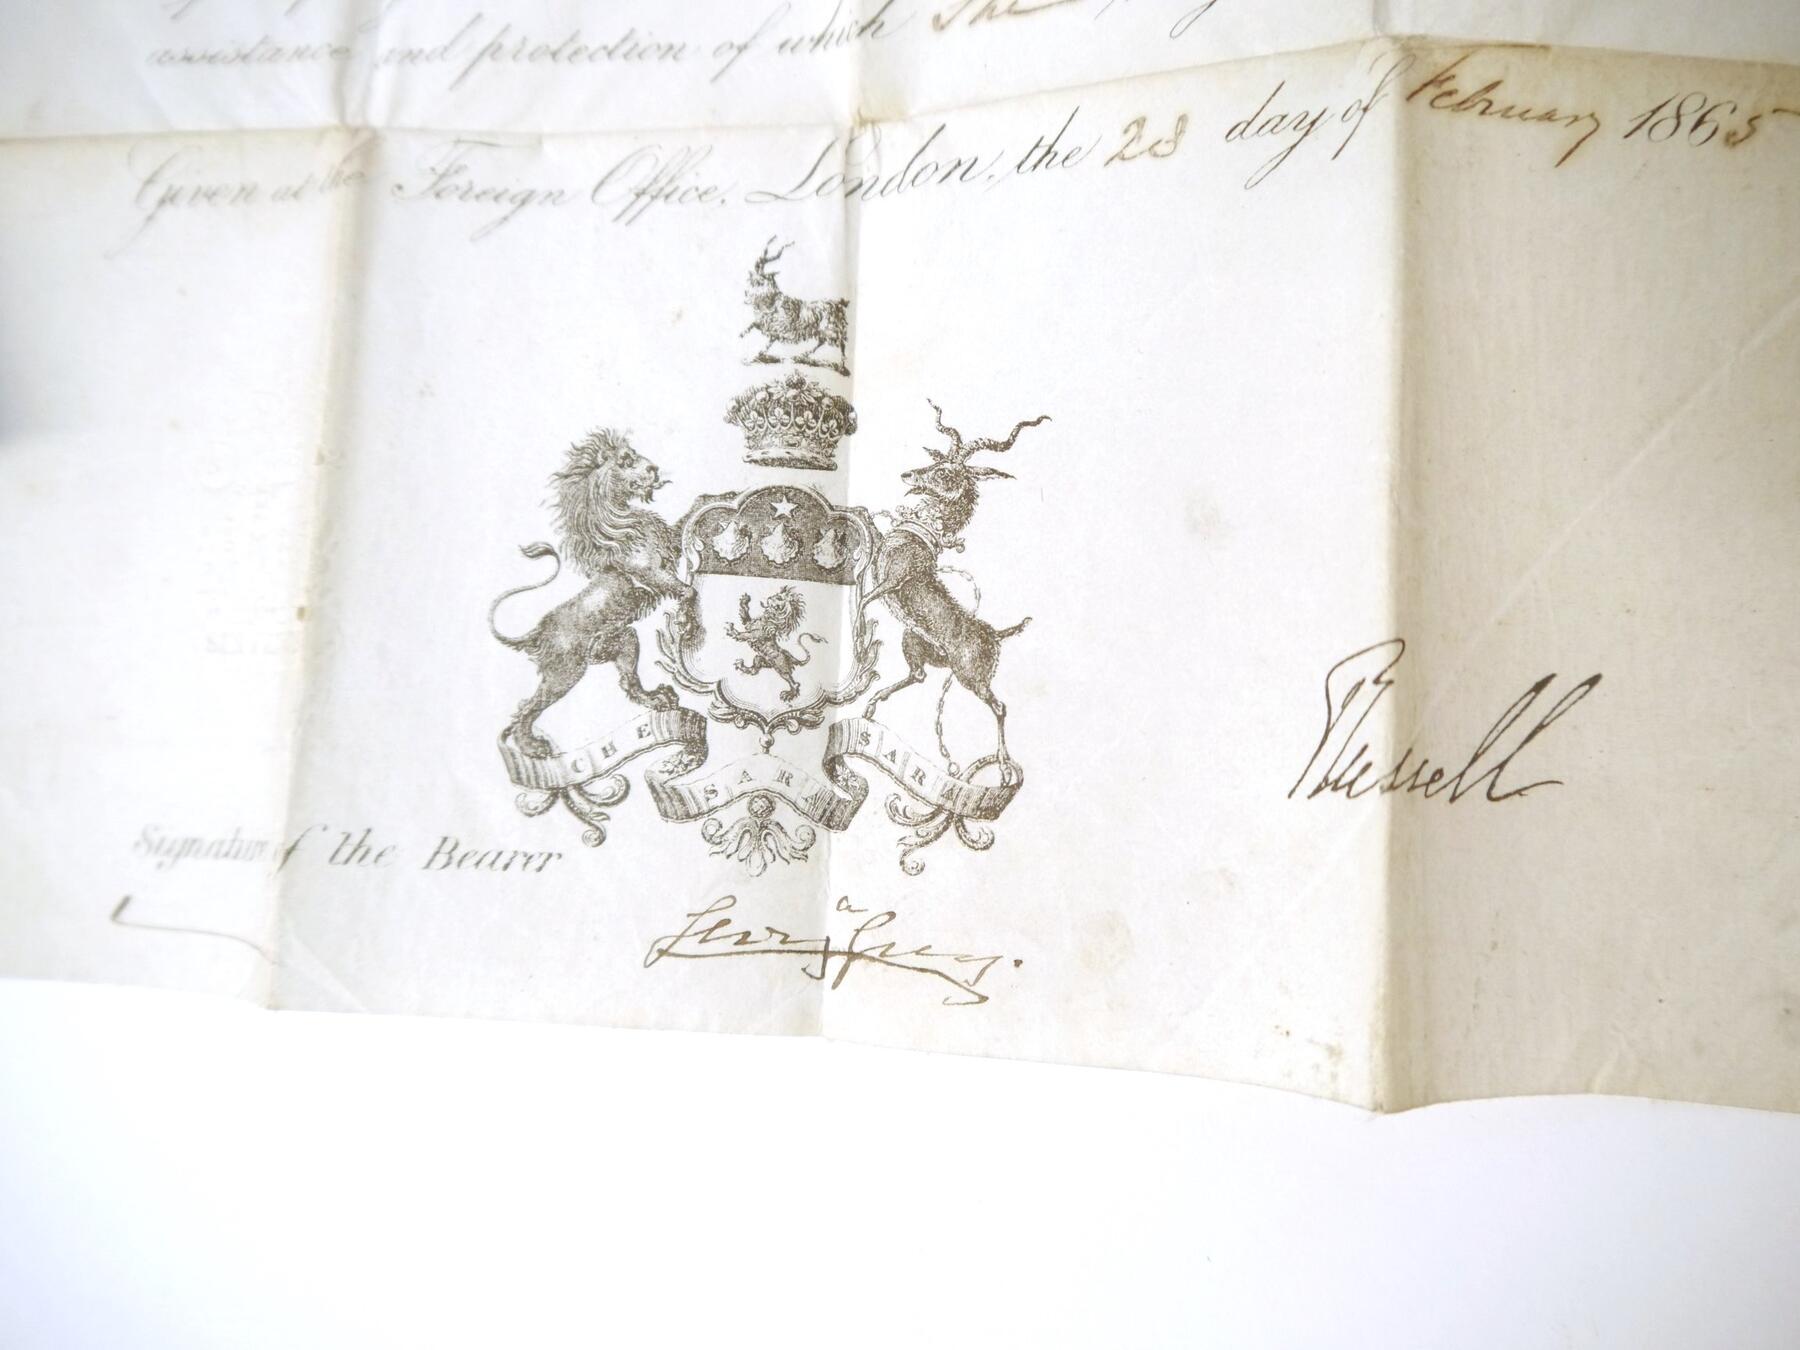 assistance and protection of which She may
Given at the Foreign Office, London, the 28 day of February 1865
CHE SARA SARA
Russell
Signature of the Bearer